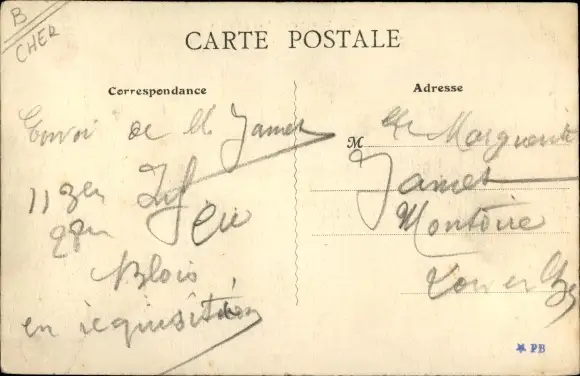 B
CHER
CARTE POSTALE
Correspondance
Envoi de M James
113en
Blois
en réquisition
Adresse
M lle Marguerite
James
Montoire
Loir et Cher
PB